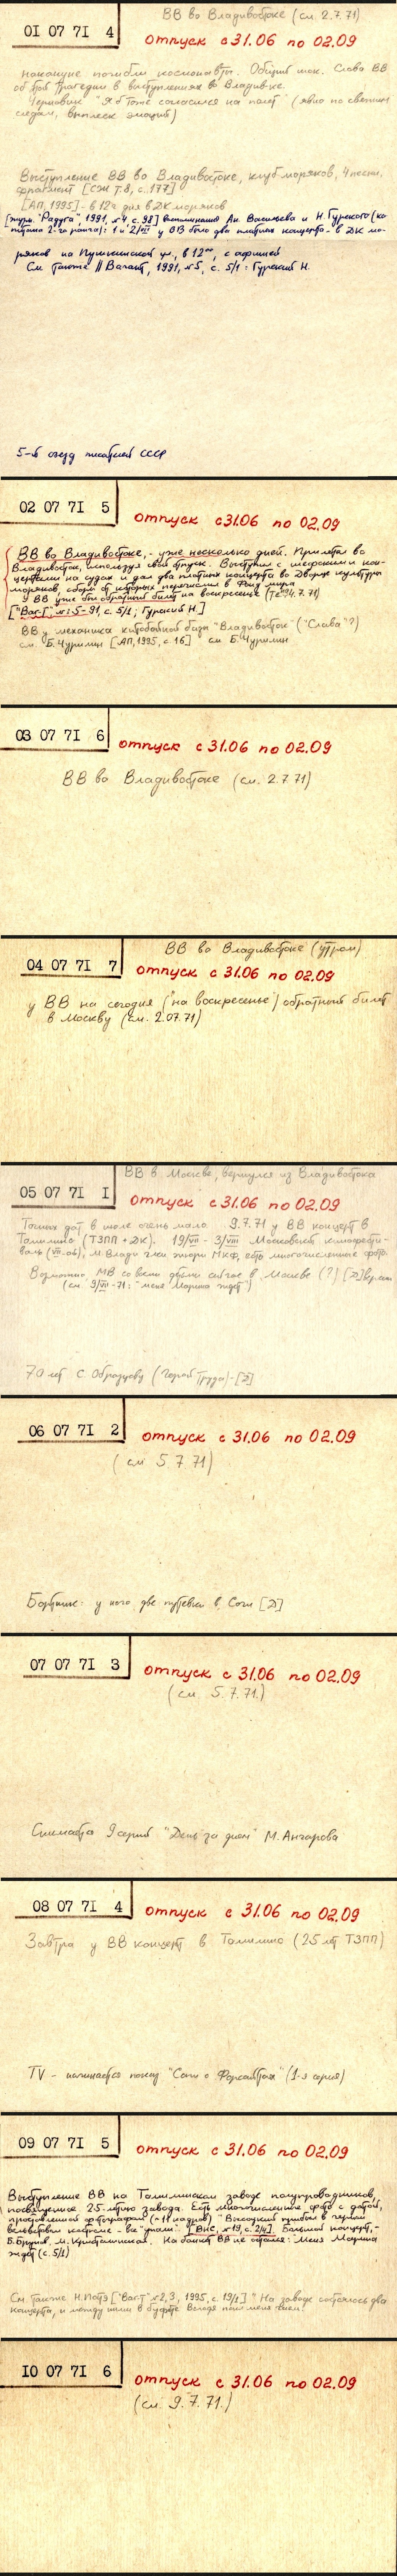 ВВ во Владивостоке (см. 2.7.71)
01 07 71 4
отпуск с 31.06 по 02.09
накануне погибли космонавты. Общий шок. Слова ВВ
об этой трагедии в выступлениях во Владив-ке.
Черновик "Я б тоже согласился на полет" (явно по свежим
следам, выплеск эмоций)
Выступление ВВ во Владивостоке, клуб моряков, 4 песни,
фрагмент [СЖ т.8, с.177]
[АП, 1995] - в 12ч дня в ДК моряков
[журн. "Радуга", 1991, №4 с. 98] воспоминания Ан. Васильева и Н. Гурского (ка-
питана 2-го ранга): 1 и 2/VII у ВВ было два платных концерта - в ДК мо-
ряков на Пушкинской ул., в 12⁰⁰, с афишей
См также // Вагант, 1991, №5, с. 5/1: Гурский Н.
5-й съезд писателей СССР
02 07 71 5
отпуск с 31.06 по 02.09
ВВ во Владивостоке, - уже несколько дней. Прилетел во
Владивосток, используя свой отпуск. Выступил с шефскими кон-
цертами на судах и дал два платных концерта во Дворце культуры
моряков, сборы от которых перечислил в Фонд мира
У ВВ уже был обратный билет на воскресенье (т.е. 4.7.71)
["Ваг-т", №5-91, с. 5/1; Гурский Н.]
ВВ у механика китобойной базы "Владивосток" ("Слава"?)
см. Б. Чурилин [АП, 1995, с 16] см Б. Чурилин
03 07 71 6
отпуск с 31.06 по 02.09
ВВ во Владивостоке (см. 2.7.71)
ВВ во Владивостоке (утром)
04 07 71 7
отпуск с 31.06 по 02.09
у ВВ на сегодня ("на воскресенье") обратный билет
в Москву (см. 2.07.71)
ВВ в Москве, вернулся из Владивостока
05 07 71 1
отпуск с 31.06 по 02.09
Точных дат в июле очень мало. 9.7.71 у ВВ концерт в
Томилино (ТЗПП + ДК). 19/VII - 3/VIII Московский кинофести-
валь (VII-ой), М. Влади член жюри МКФ, есть многочисленные фото.
Возможно МВ со всеми детьми сейчас в Москве (?) [Д] версия
(см. 9/VII-71: "меня Марина ждет")
70 лет С. Образцову (Герой Труда) - [Д]
06 07 71 2
отпуск с 31.06 по 02.09
(см 5.7.71)
Бортник: у него две путевки в Сочи [Д]
07 07 71 3
отпуск с 31.06 по 02.09
(см. 5.7.71.)
Снимается 9 серий "День за днем" М. Анчарова
08 07 71 4
отпуск с 31.06 по 02.09
Завтра у ВВ концерт в Томилино (25 лет ТЗПП)
TV - начинается показ "Саги о Форсайтах" (1-я серия)
09 07 71 5
отпуск с 31.06 по 02.09
Выступление ВВ на Томилинском заводе полупроводников,
посвященное 25-летию завода. Есть многочисленные фото с датой,
проставленной фотографом (~11 кадров) "Высоцкий прибыл в черном
вельветовом костюме - все "упали". [ВИС, №19, с. 2/4]. Большой концерт, -
Б. Брунов, М. Кристалинская. На банкет ВВ не остался: "Меня Марина
ждет" (с. 5/1)
См. также Н. Потэ ["Ваг-т" №2,3, 1995, с. 19/1] "На заводе состоялось два
концерта, и между ними в буфете
10 07 71 6
отпуск с 31.06 по 02.09
(см. 9.7.71.)